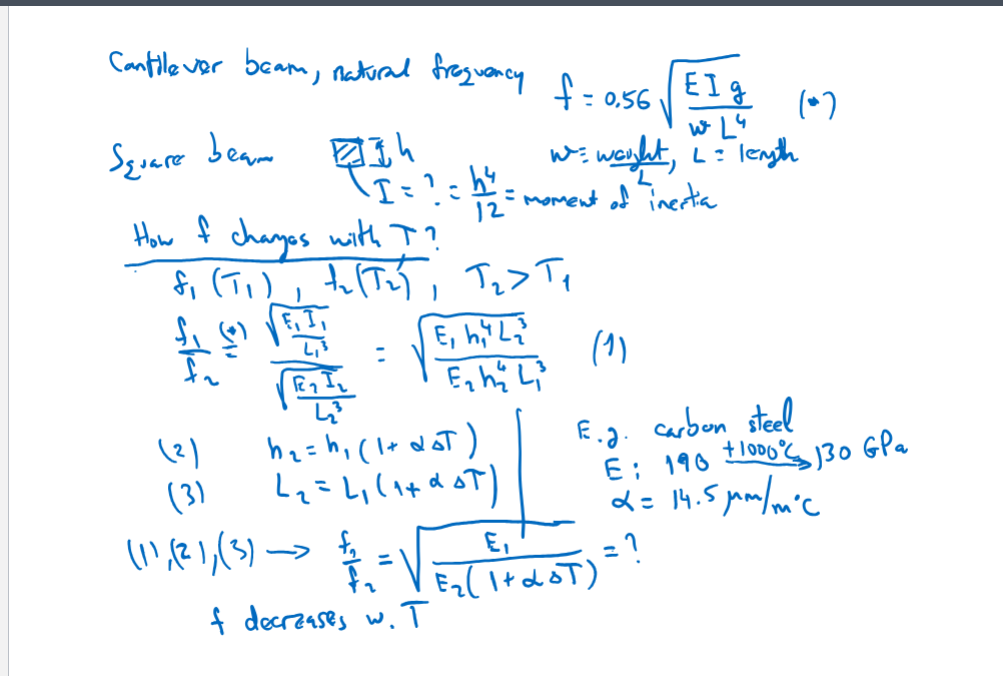 Cantilever beam, natural frequency f = 0.56 √(E I g / w L⁴) (*)
Square beam h w = weight/L, L = length
I = ? = h⁴/12 = moment of inertia
How f changes with T?
f₁(T₁), f₂(T₂), T₂ > T₁
f₁/f₂ (*)= √(E₁I₁/L₁³) / √(E₂I₂/L₂³) = √(E₁h₁⁴L₂³ / E₂h₂⁴L₁³) (1)
(2) h₂ = h₁(1 + αΔT)
(3) L₂ = L₁(1 + αΔT)
E.g. carbon steel
E: 190 +1000°C → 130 GPa
α = 14.5 μm/m°C
(1),(2),(3) → f₁/f₂ = √(E₁ / E₂(1 + αΔT)) = ?
f decreases w. T